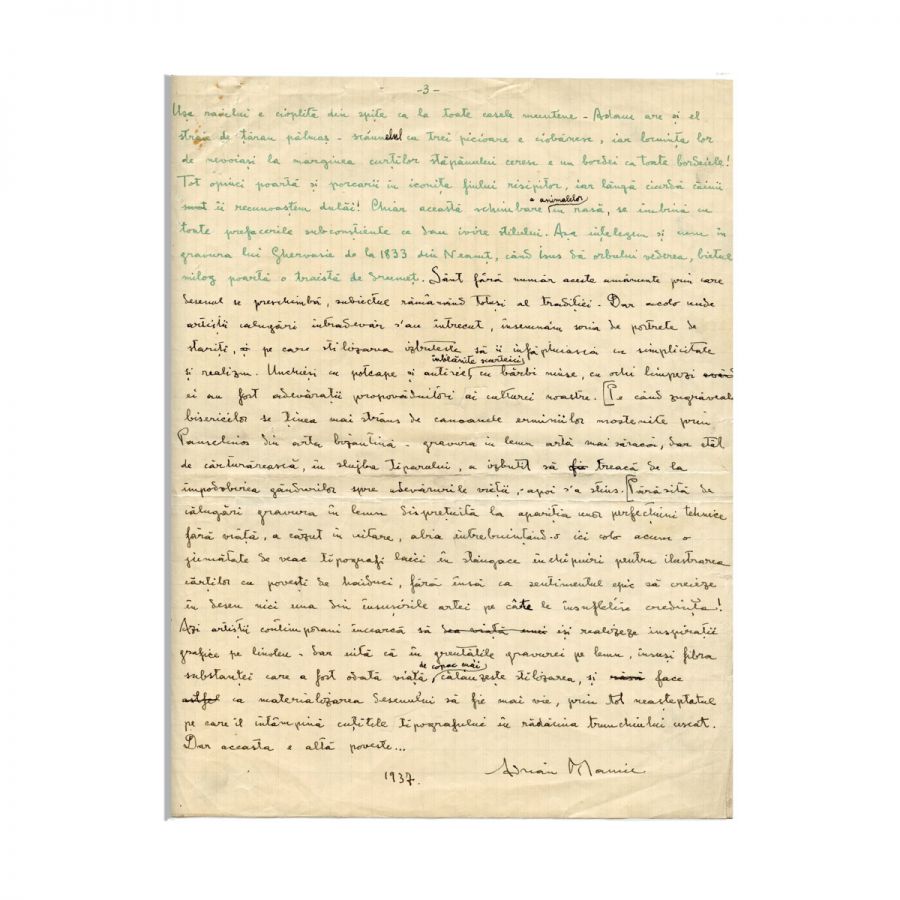 -3-
Ușa raiului e cioplită din șpițe ca la toate casele muntene - Adam are și el
straie de țăran pălmaș - scăunelul cu trei picioare e ciobănesc, iar locuința lor
de nevoiași la marginea curților stăpânului ceresc e un bordei ca toate bordeiele!
Tot opinci poartă și porcarii în iconița fiului risipitor, iar lângă cireadă câinii
sunt îi recunoaștem dulăi! Chiar această schimbare a animalelor în rasă, se îmbină cu
toate prefacerile subconștiente ce dau ivire stilului. Așa înțelegem și cum în
gravura lui Ghervasie de la 1833 din Neamț, când Isus dă orbului vederea, bietul
milog poartă o traistă de drumeț. Sânt fără număr aceste amănunte prin care
desenul se preschimbă, subiectul rămânând totuși al tradiției. Dar acolo unde
artiștii călugări într'adevăr s'au întrecut, însemnăm seria de portrete de
stariți, și pe care stilizarea izbutește să îi înfăptuiască cu simplicitate
și realizm. Unchieși cu potcape și antirie, îmblănite scurteici, cu bărbi ninse, cu ochi limpezi
ei au fost adevărații propovăduitori ai culturei noastre. [Pe când zugrăveala
bisericilor se ținea mai strâns de canoanele erminiilor moștenite prin
Panselinos din arta bizantină - gravura în lemn artă mai săracă, dar atât
de cărturărească, în slujba tiparului, a izbutit să fie treacă de la
împodobirea gândurilor spre adevărurile vieții, - apoi s'a stins. [Părăsită de
călugări gravura în lemn disprețuită la apariția unor perfecțiuni tehnice
fără viață, a căzut în uitare, abia întrebuințând-o ici colo acum o
jumătate de veac tipografi laici în stângace închipuiri pentru ilustrarea
cărților cu povești de haiduci, fără însă ca sentimentul epic să creieze
în desen nici una din însușirile artei pe câte le însuflețise credința!
Azi artiștii contimporani încearcă să dea viață unei își realizeze inspirații
grafice pe linoleu - dar uită că în greutățile gravurei pe lemn, însuși fibra
substanței care a fost odată viață de copac mai călăuzește stilizarea, și face
astfel ca materializarea desenului să fie mai vie, prin tot neașteptatul
pe care îl întâmpină cuțitele tipografului în rădăcina trunchiului uscat.
Dar aceasta e altă poveste...
1937. Adrian Maniu